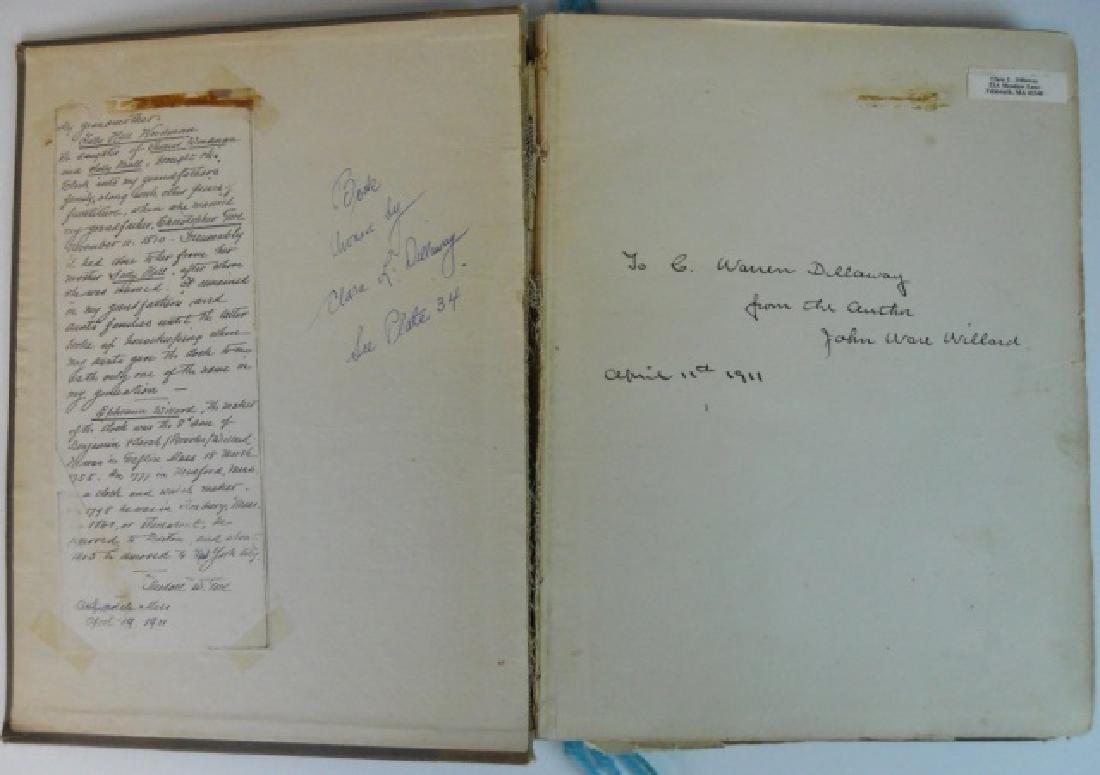 My grandmother
Sally Hall Woodman
the daughter of Woodman
and Sally Hall, brought this
Clock into my grandfather's
family, along with other pieces of
furniture, when she married
my grandfather, Christopher Gore
November 11. 1810. Presumably
it had come to her from her
mother Sally Hall, after whom
she was named. It remained
in my grandfather's and
aunts' families until the latter
broke up housekeeping when
my aunts gave the clock to me,
only one of the name in
my generation —
Ephraim Willard, the maker
of the clock was the son of
Benjamin & Sarah (Brooks) Willard
in Grafton Mass 18 March
1755. In 1777 in Medford, Mass
a clock and watch maker.
1798 he was in Roxbury, Mass.
1801, or thereabout, he
removed to Boston, and about
1805 he removed to New York City
W. Gore
Mass
April 19 1911
Book
Owned by
Clara L. Dillaway
See Plate 34
Clara L. Dillaway
Falmouth, MA 02540
To C. Warren Dillaway
from the Author
John Ware Willard
April 11th 1911